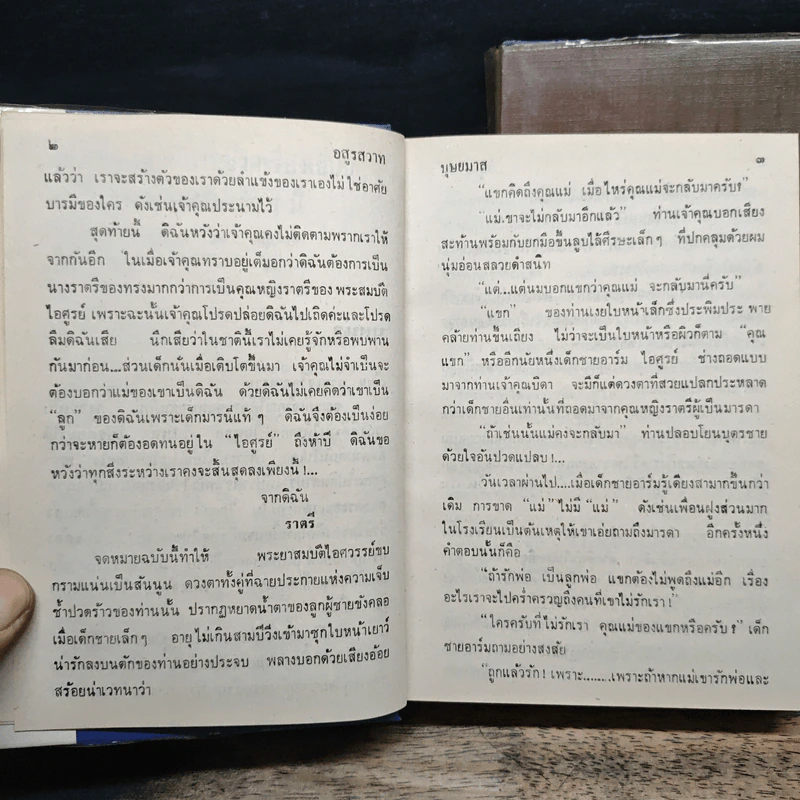 ๒ อสูรสวาท
แล้วว่า เราจะสร้างตัวของเราด้วยลำแข้งของเราเองไม่ใช่อาศัย
บารมีของใคร ดังเช่นเจ้าคุณประนามไว้
สุดท้ายนี้ ดิฉันหวังว่าเจ้าคุณคงไม่ติดตามพรากเราให้
จากกันอีก ในเมื่อเจ้าคุณทราบอยู่เต็มอกว่าดิฉันต้องการเป็น
นางราตรีของทรงมากกว่าการเป็นคุณหญิงราตรีของ พระสมบัติ
ไอศูรย์ เพราะฉะนั้นเจ้าคุณโปรดปล่อยดิฉันไปเถิดค่ะและโปรด
ลืมดิฉันเสีย นึกเสียว่าในชาตินี้เราไม่เคยรู้จักหรือพบพาน
กันมาก่อน...ส่วนเด็กนั่นเมื่อเติบโตขึ้นมา เจ้าคุณไม่จำเป็นจะ
ต้องบอกว่าแม่ของเขาเป็นดิฉัน ด้วยดิฉันไม่เคยคิดว่าเขาเป็น
“ลูก” ของดิฉันเพราะเด็กมารนี่แท้ ๆ ดิฉันจึงต้องเป็นง่อย
กว่าจะหายก็ต้องอดทนอยู่ใน “ไอศูรย์” ถึงห้าปี ดิฉันขอ
หวังว่าทุกสิ่งระหว่างเราคงจะสิ้นสุดลงเพียงนี้!...
จากดิฉัน
ราตรี
จดหมายฉบับนี้ทำให้ พระยาสมบัติไอศวรรย์ขบ
กรามแน่นเป็นสันนูน ดวงตาทั้งคู่ที่ฉายประกายแห่งความเจ็บ
ช้ำปวดร้าวของท่านนั้น ปรากฏหยาดน้ำตาของลูกผู้ชายขังคลอ
เมื่อเด็กชายเล็ก ๆ อายุไม่เกินสามปีวิ่งเข้ามาซุกใบหน้าเยาว์
น่ารักลงบนตักของท่านอย่างประจบ พลางบอกด้วยเสียงอ้อย
สร้อยน่าเวทนาว่า
บุษยมาส ๓
“แขกคิดถึงคุณแม่ เมื่อไหร่คุณแม่จะกลับมาครับ?”
“แม่เขาจะไม่กลับมาอีกแล้ว” ท่านเจ้าคุณบอกเสียง
สะท้านพร้อมกับยกมือขึ้นลูบไล้ศีรษะเล็ก ๆ ที่ปกคลุมด้วยผม
นุ่มอ่อนสลวยดำสนิท
“แต่...แต่นมบอกแขกว่าคุณแม่ จะกลับมานี่ครับ”
“แขก” ของท่านเงยใบหน้าเล็กซึ่งประพิมประ พาย
คล้ายท่านขึ้นเถียง ไม่ว่าจะเป็นใบหน้าหรือผิวก็ตาม “คุณ
แขก” หรืออีกนัยหนึ่งเด็กชายอาร์ม ไอศูรย์ ช่างถอดแบบ
มาจากท่านเจ้าคุณบิดา จะมีก็แต่ดวงตาที่สวยแปลกประหลาด
กว่าเด็กชายอื่นเท่านั้นที่ถอดมาจากคุณหญิงราตรีผู้เป็นมารดา
“ถ้าเช่นนั้นแม่คงจะกลับมา” ท่านปลอบโยนบุตรชาย
ด้วยใจอันปวดแปลบ!...
วันเวลาผ่านไป....เมื่อเด็กชายอาร์มรู้เดียงสามากขึ้นกว่า
เดิม การขาด “แม่” ไม่มี “แม่” ดังเช่นเพื่อนฝูงส่วนมาก
ในโรงเรียนเป็นต้นเหตุให้เขาเอ่ยถามถึงมารดา อีกครั้งหนึ่ง
คำตอบนั้นก็คือ
“ถ้ารักพ่อ เป็นลูกพ่อ แขกต้องไม่พูดถึงแม่อีก เรื่อง
อะไรเราจะไปคร่ำครวญถึงคนที่เขาไม่รักเรา!”
“ใครครับที่ไม่รักเรา คุณแม่ของแขกหรือครับ?” เด็ก
ชายอาร์มถามอย่างสงสัย
“ถูกแล้วรัก! เพราะ.......เพราะถ้าหากแม่เขารักพ่อและ